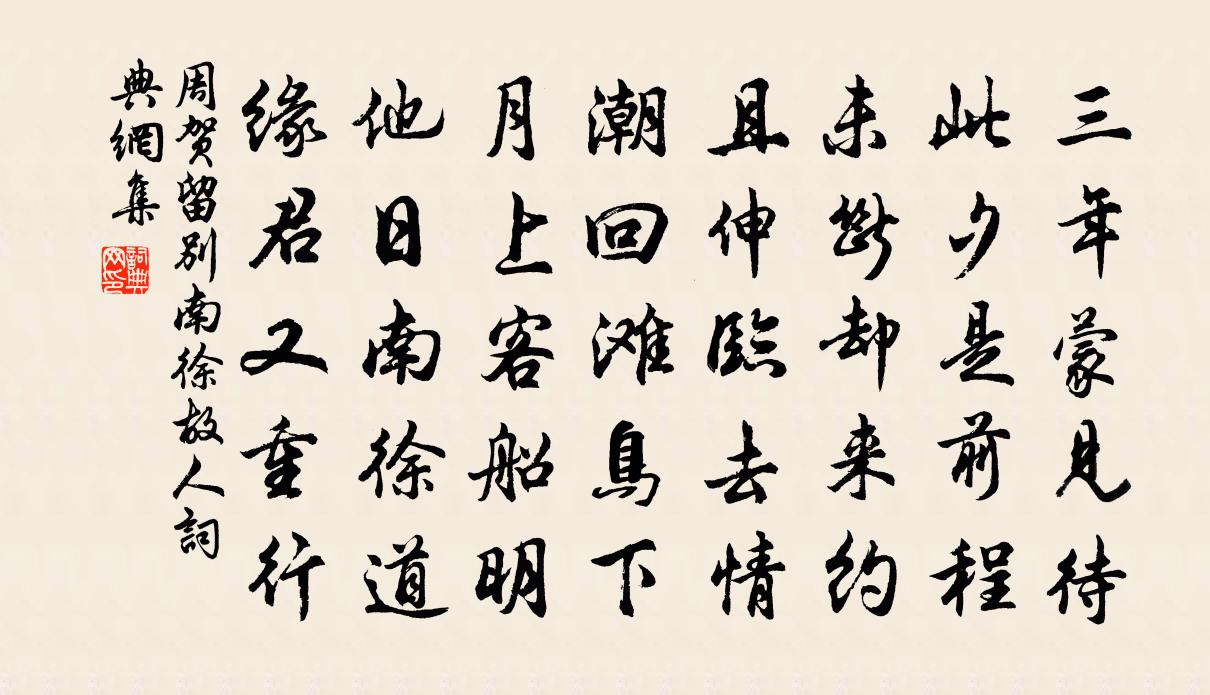 三年蒙見待
此夕是前程
未斷却来約
且伸臨去情
潮回滩鳥下
月上客船明
他日南徐道
緣君又重行
周贺留别南徐故人詞
典網集
詞典
网印